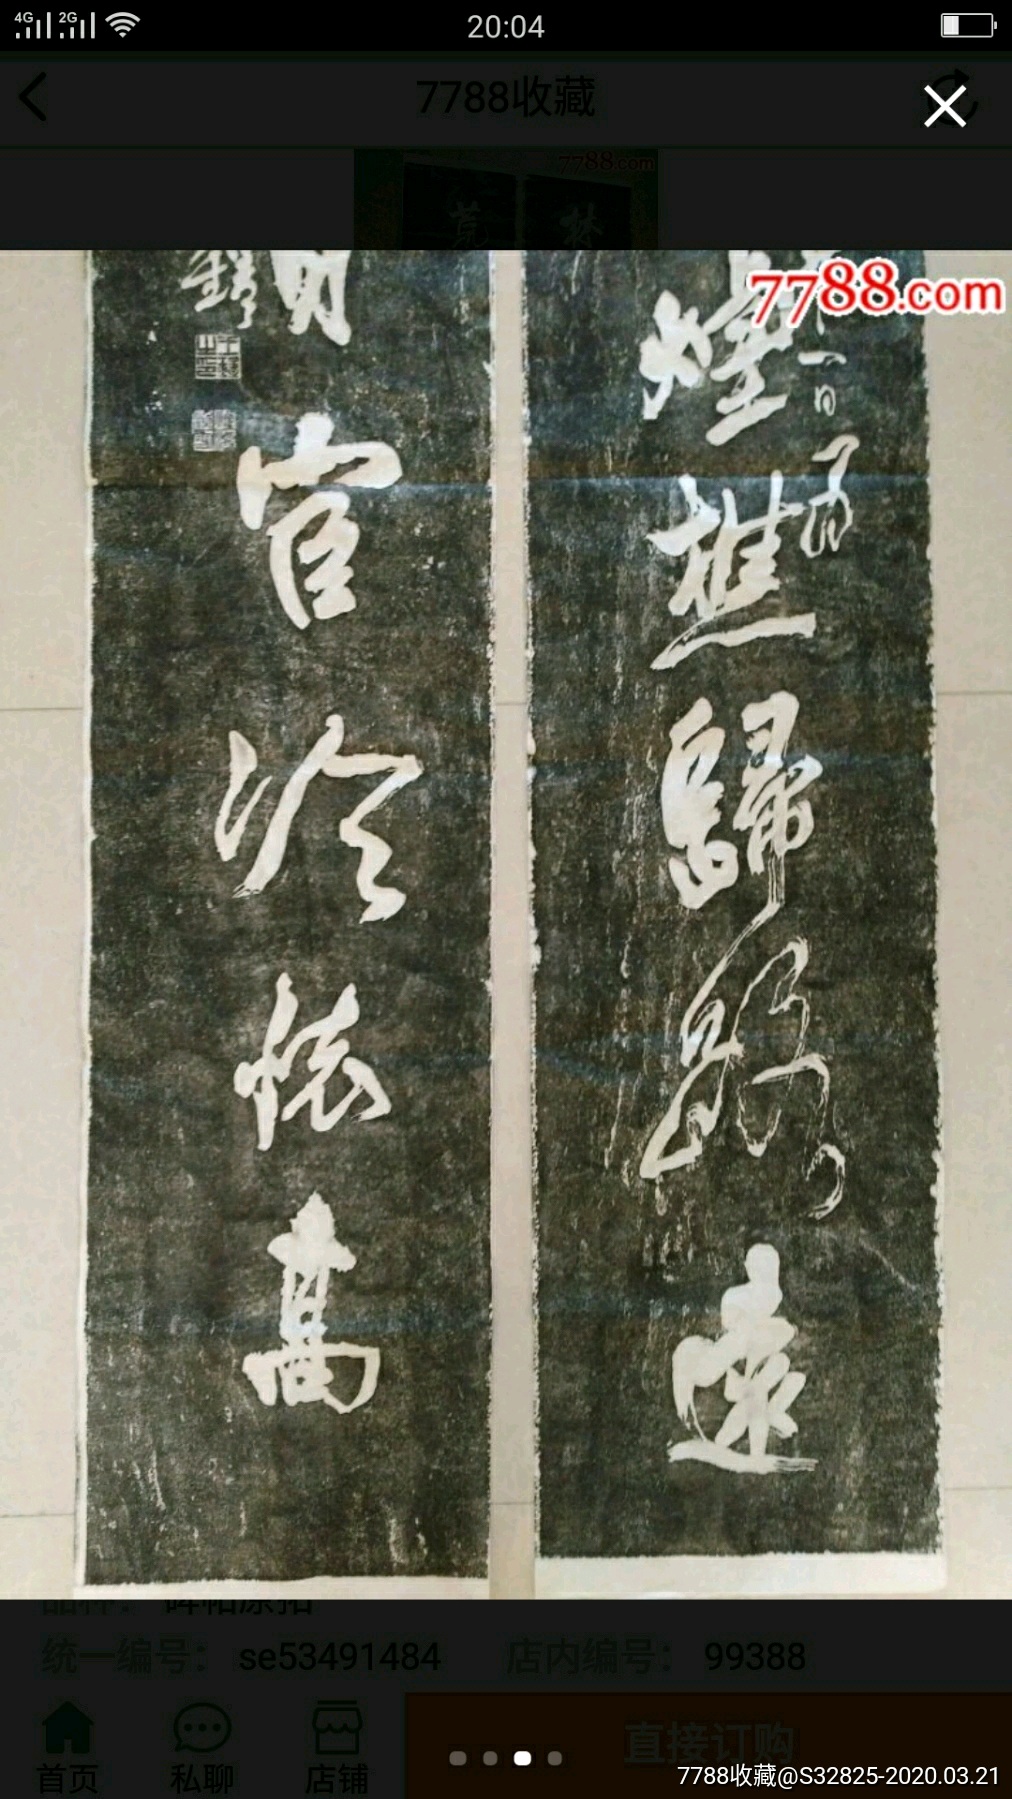 4G 2G 20:04
7788收藏
7788.com
荒 林
7788.com
煙樵歸路遠
一日
官冷懷高
鐸
統一编号： se53491484 店内编号： 99388
首页 私聊 店铺 直接订购
7788收藏@S32825-2020.03.21